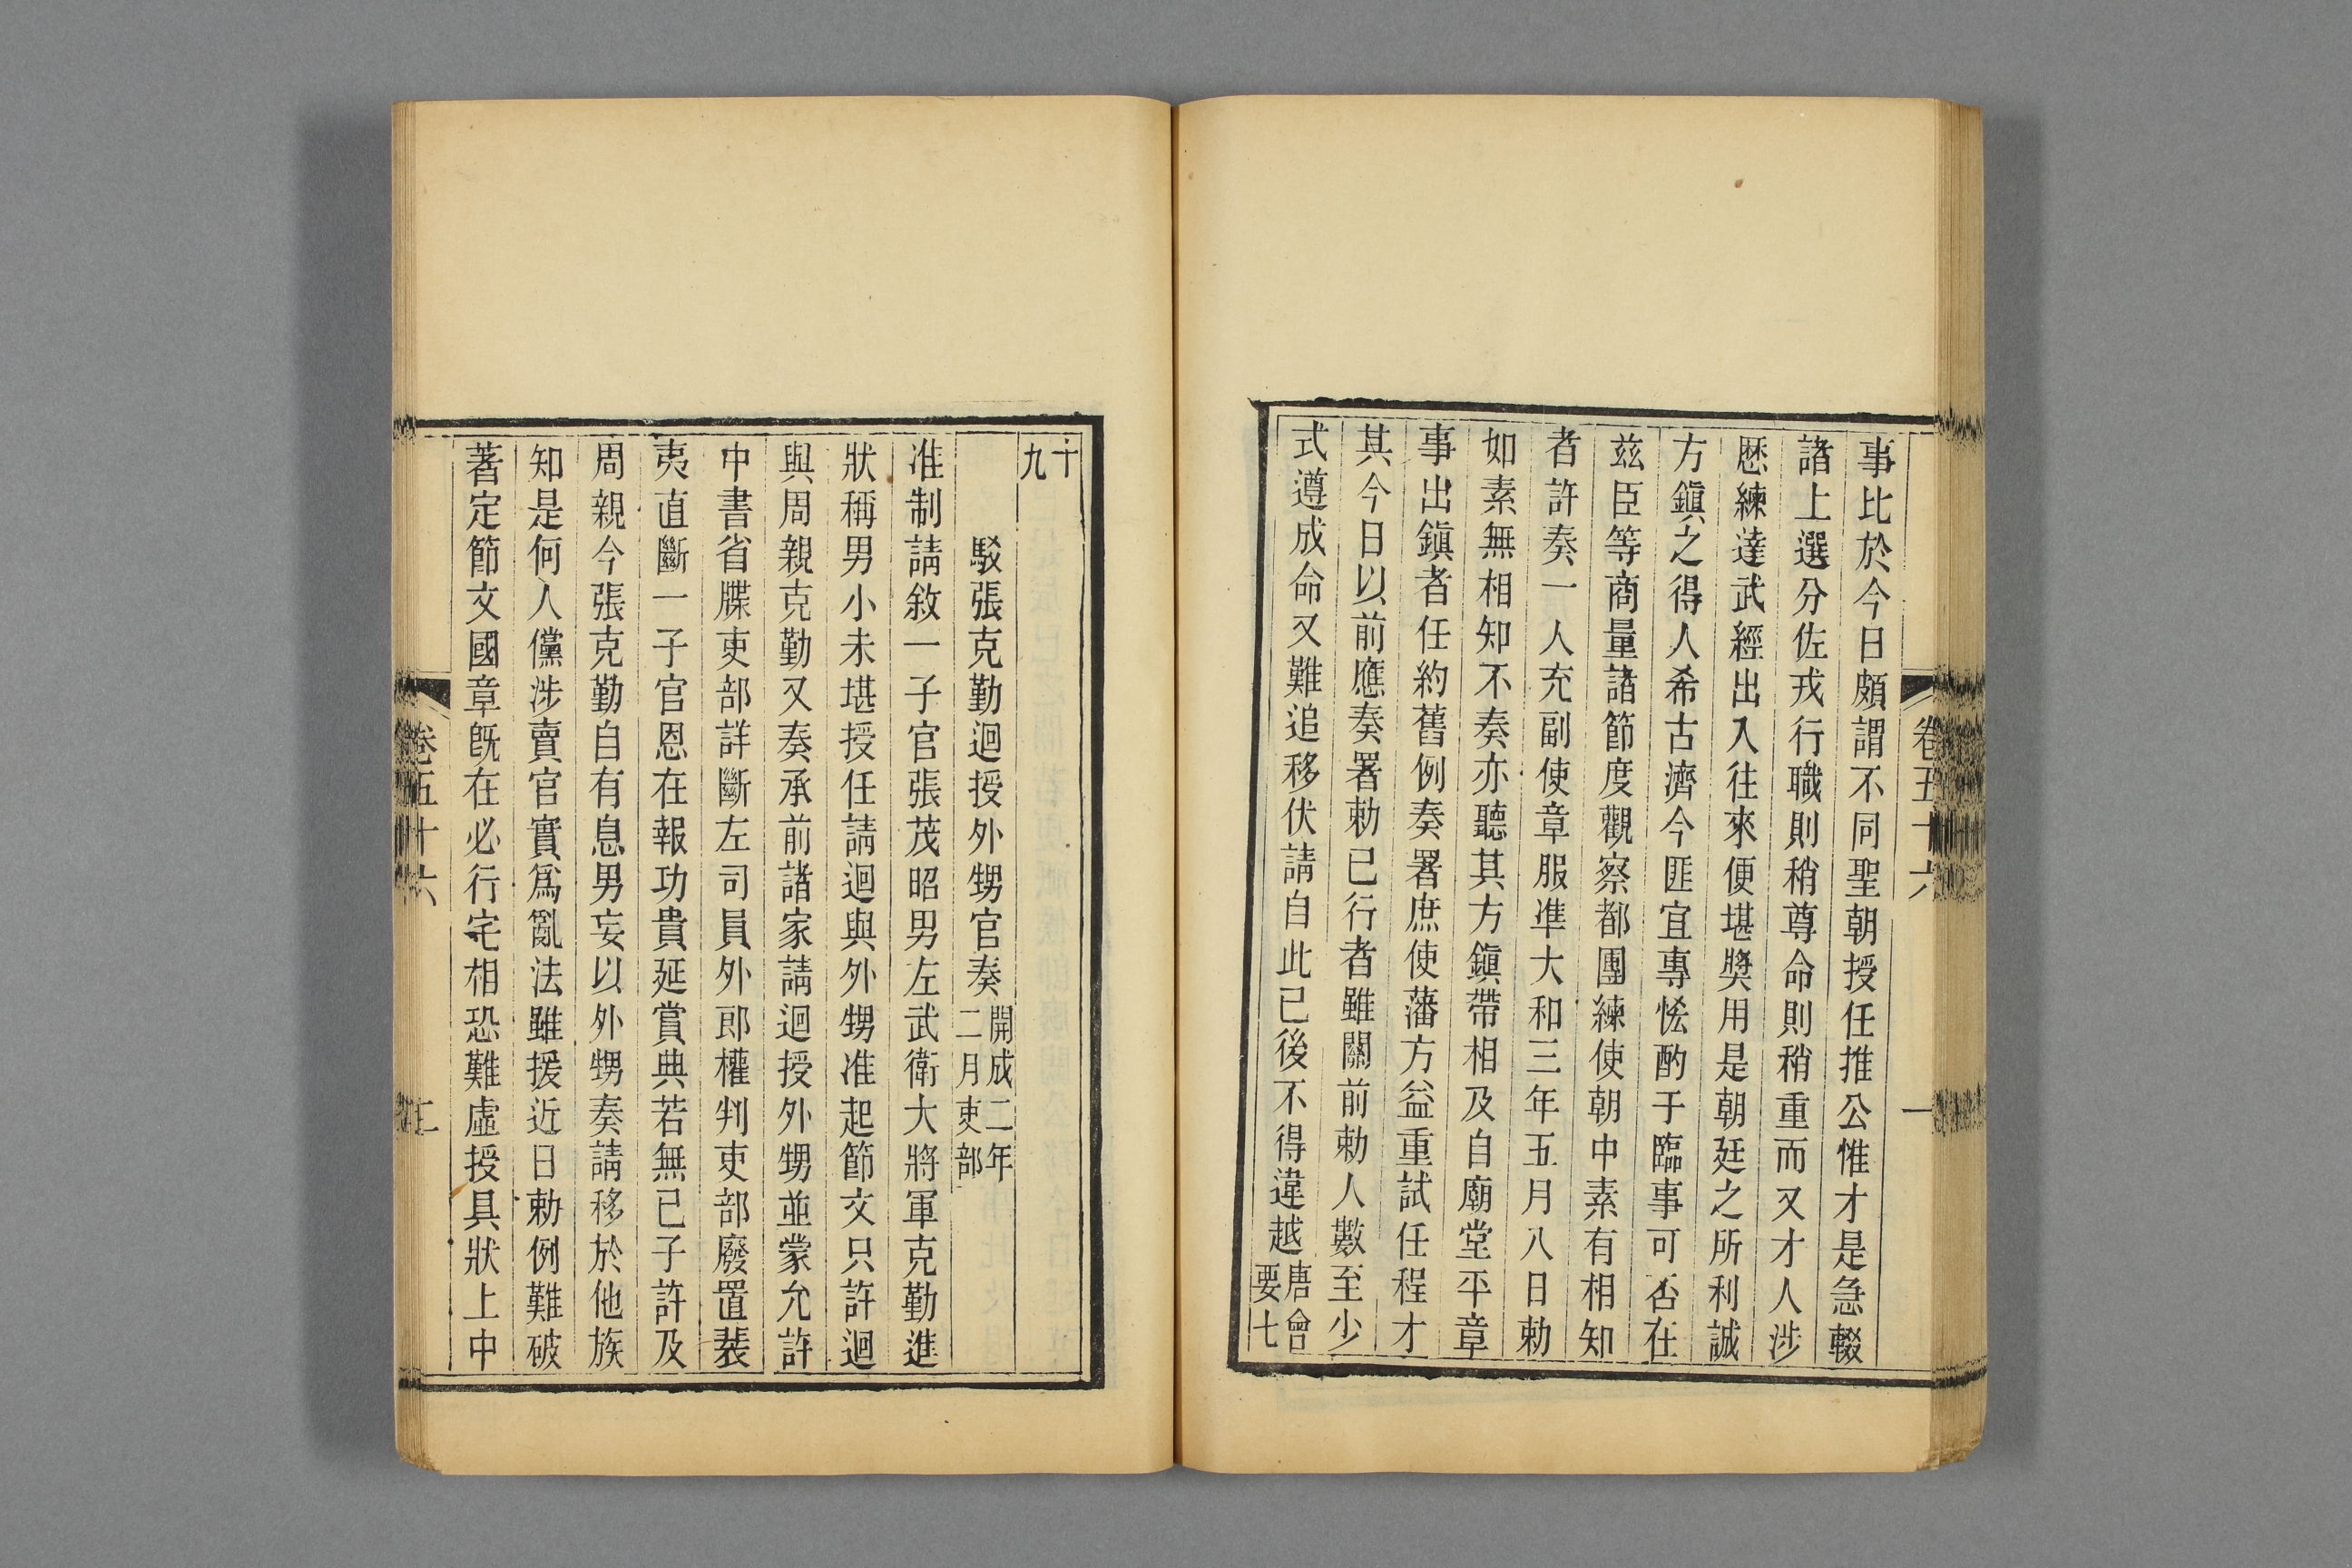 事比於今日頗謂不同聖朝授任推公惟才是急輟
諸上選分佐戎行職則稍尊命則稍重而又才人涉
歷練達武經出入往來便堪獎用是朝廷之所利誠
方鎭之得人希古濟今匪宜專恡酌于臨事可否在
兹臣等商量諸節度觀察都團練使朝中素有相知
者許奏一人充副使章服準大和三年五月八日勅
如素無相知不奏亦聽其方鎭帶相及自廟堂平章
事出鎭者任約舊例奏署庶使藩方益重試任程才
其今日以前應奏署勅已行者雖關前勅人數至少
式遵成命又難追移伏請自此已後不得違越唐會
要七
卷五十六
一
十
九
駁張克勤迴授外甥官奏開成二年
二月吏部
准制請敘一子官張茂昭男左武衛大將軍克勤進
狀稱男小未堪授任請迴與外甥准起節文只許迴
與周親克勤又奏承前諸家請迴授外甥並蒙允許
中書省牒吏部詳斷左司員外郎權判吏部廢置裴
夷直斷一子官恩在報功貴延賞典若無已子許及
周親今張克勤自有息男妄以外甥奏請移於他族
知是何人儻涉賣官實爲亂法雖援近日勅例難破
著定節文國章旣在必行宅相恐難虛授具狀上中
卷五十六